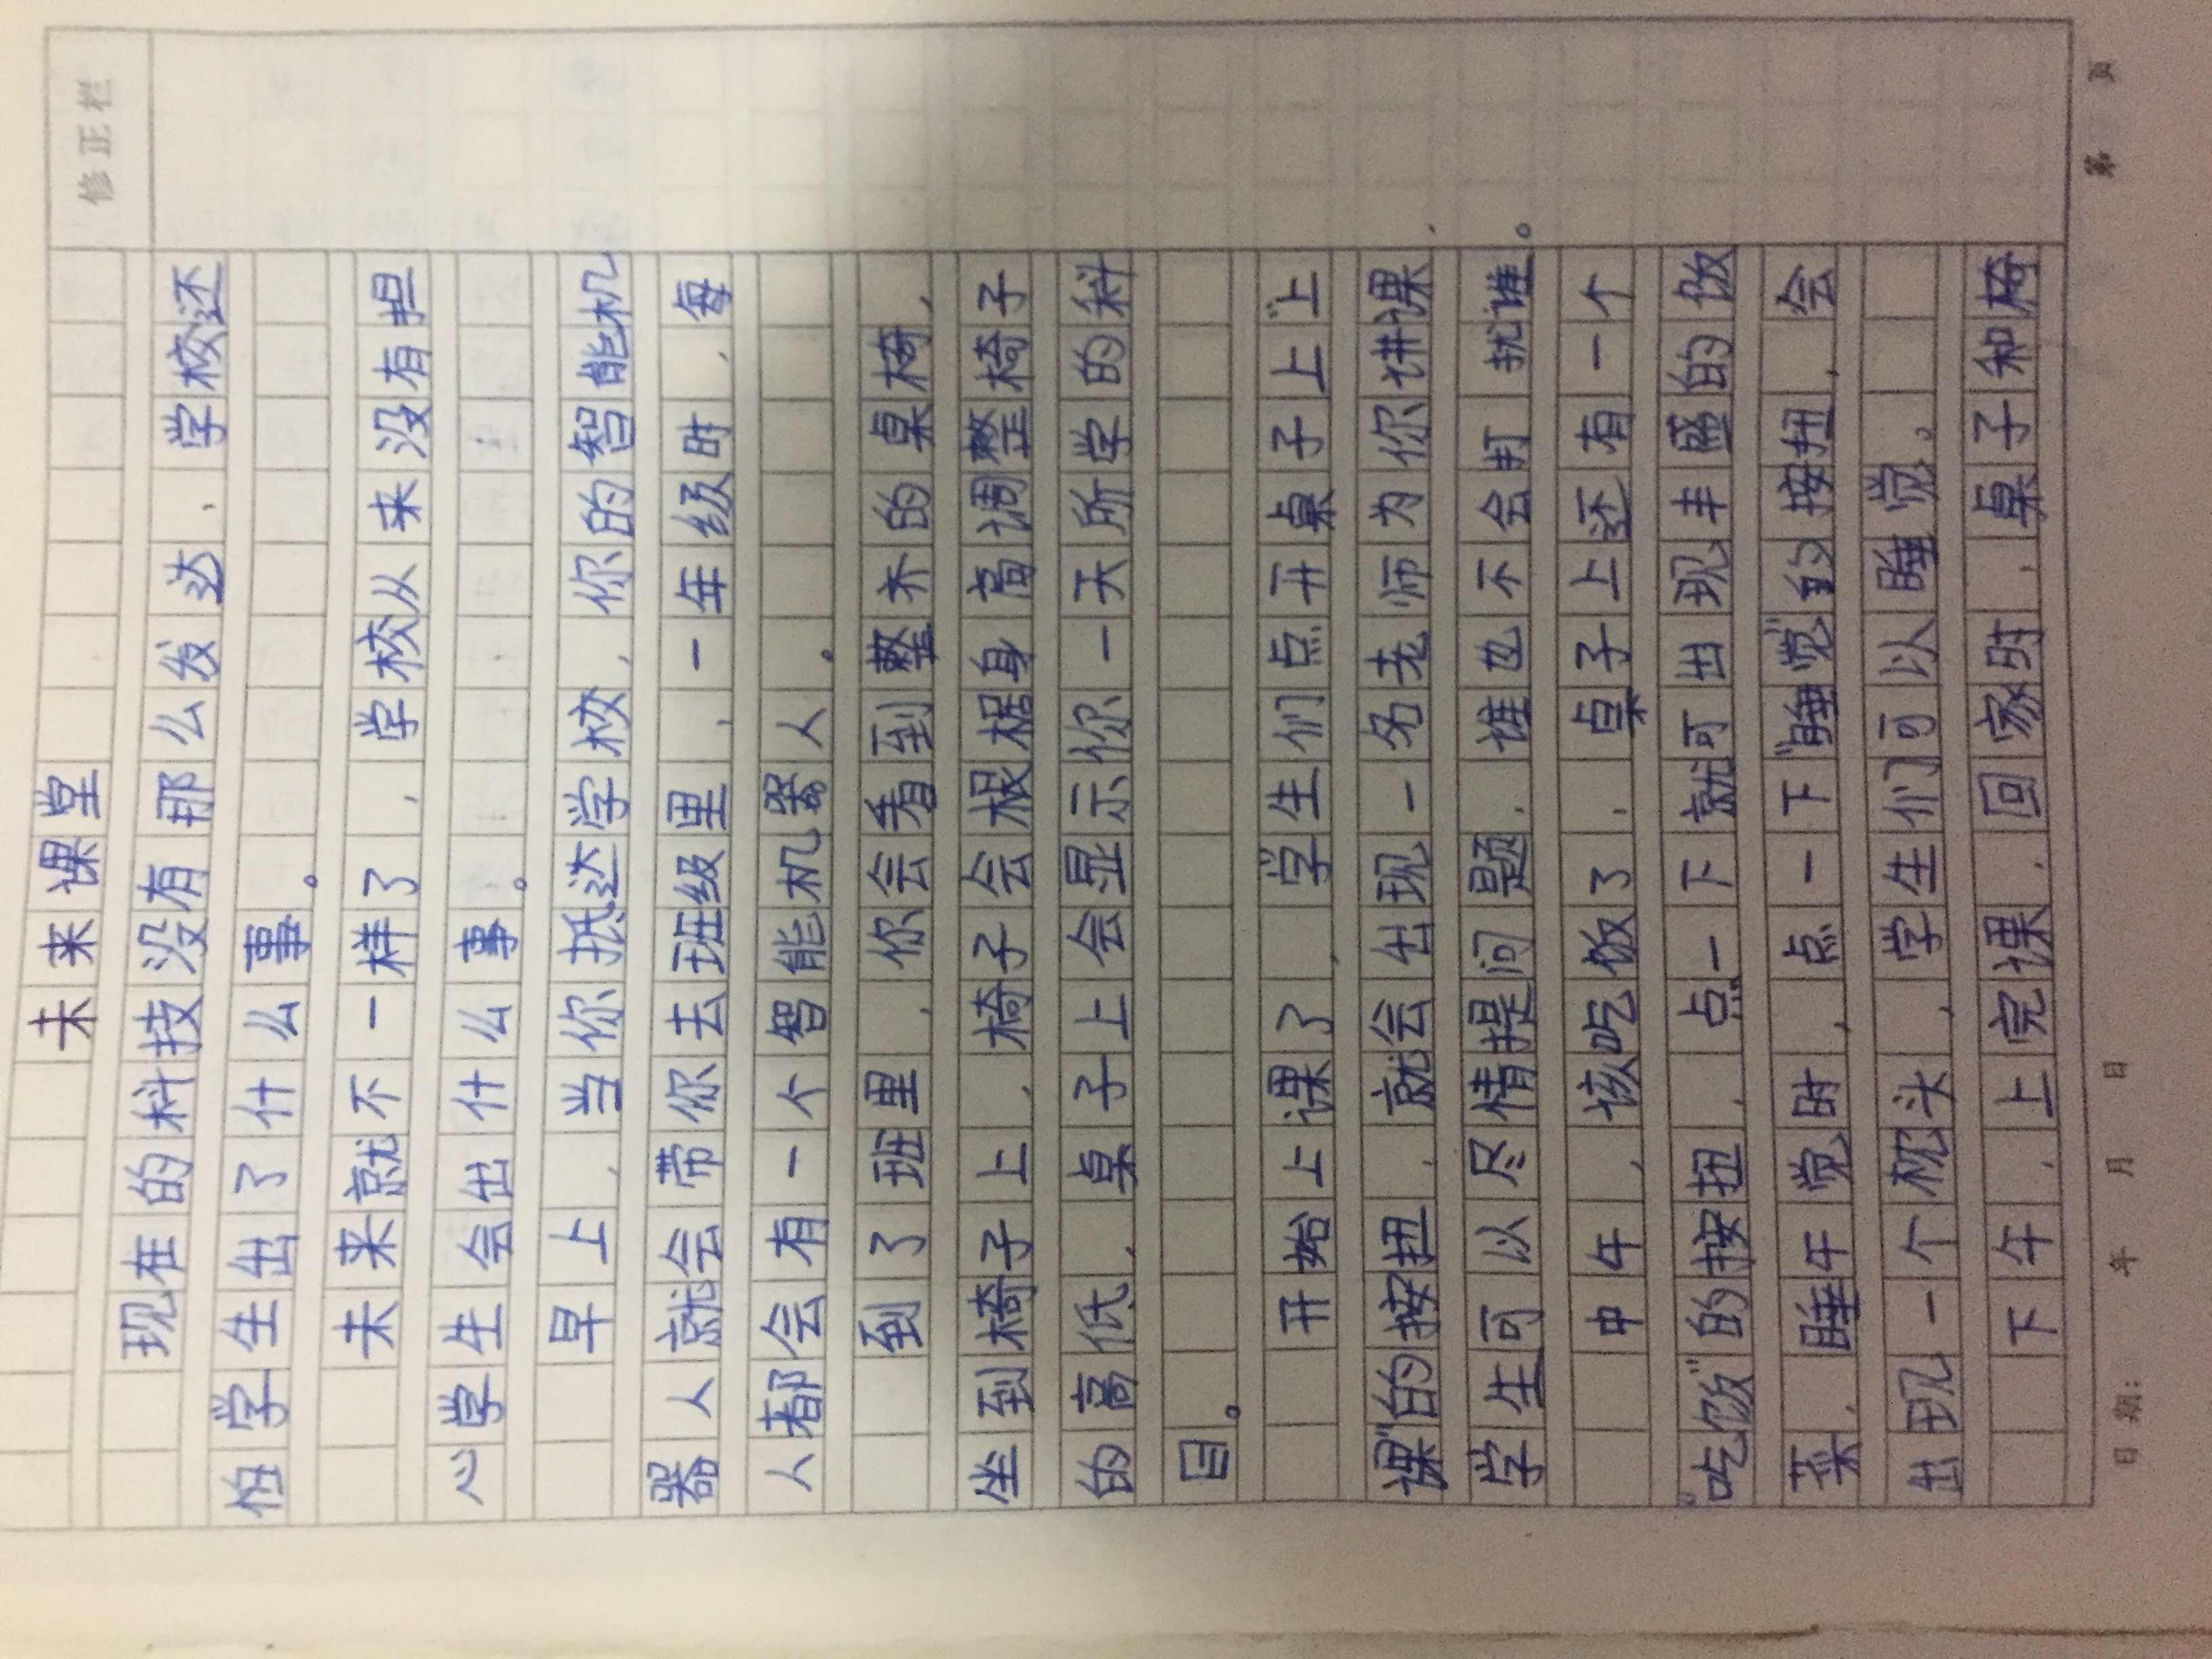 修正栏
未来课堂
现在的科技没有那么发达，学校还
怕学生出了什么事。
未来就不一样了，学校从来没有担
心学生会出什么事。
早上，当你抵达学校，你的智能机
器人就会带你去班级里，一年级时，每
人都会有一个智能机器人。
到了班里，你会看到整齐的桌椅，
坐到椅子上，椅子会根据身高调整椅子
的高低，桌子上会显示你一天所学的科
目。
开始上课了，学生们点开桌子上“上
课”的按扭，就会出现一名老师为你讲课
学生可以尽情提问题，谁也不会打扰谁。
中午，该吃饭了，桌子上还有一个
“吃饭”的按扭，点一下就可出现丰盛的饭
菜，睡午觉时，点一下“睡觉”的按扭，会
出现一个枕头，学生们可以睡觉。
下午，上完课，回家时，桌子和椅
日期： 年 月 日
第 页